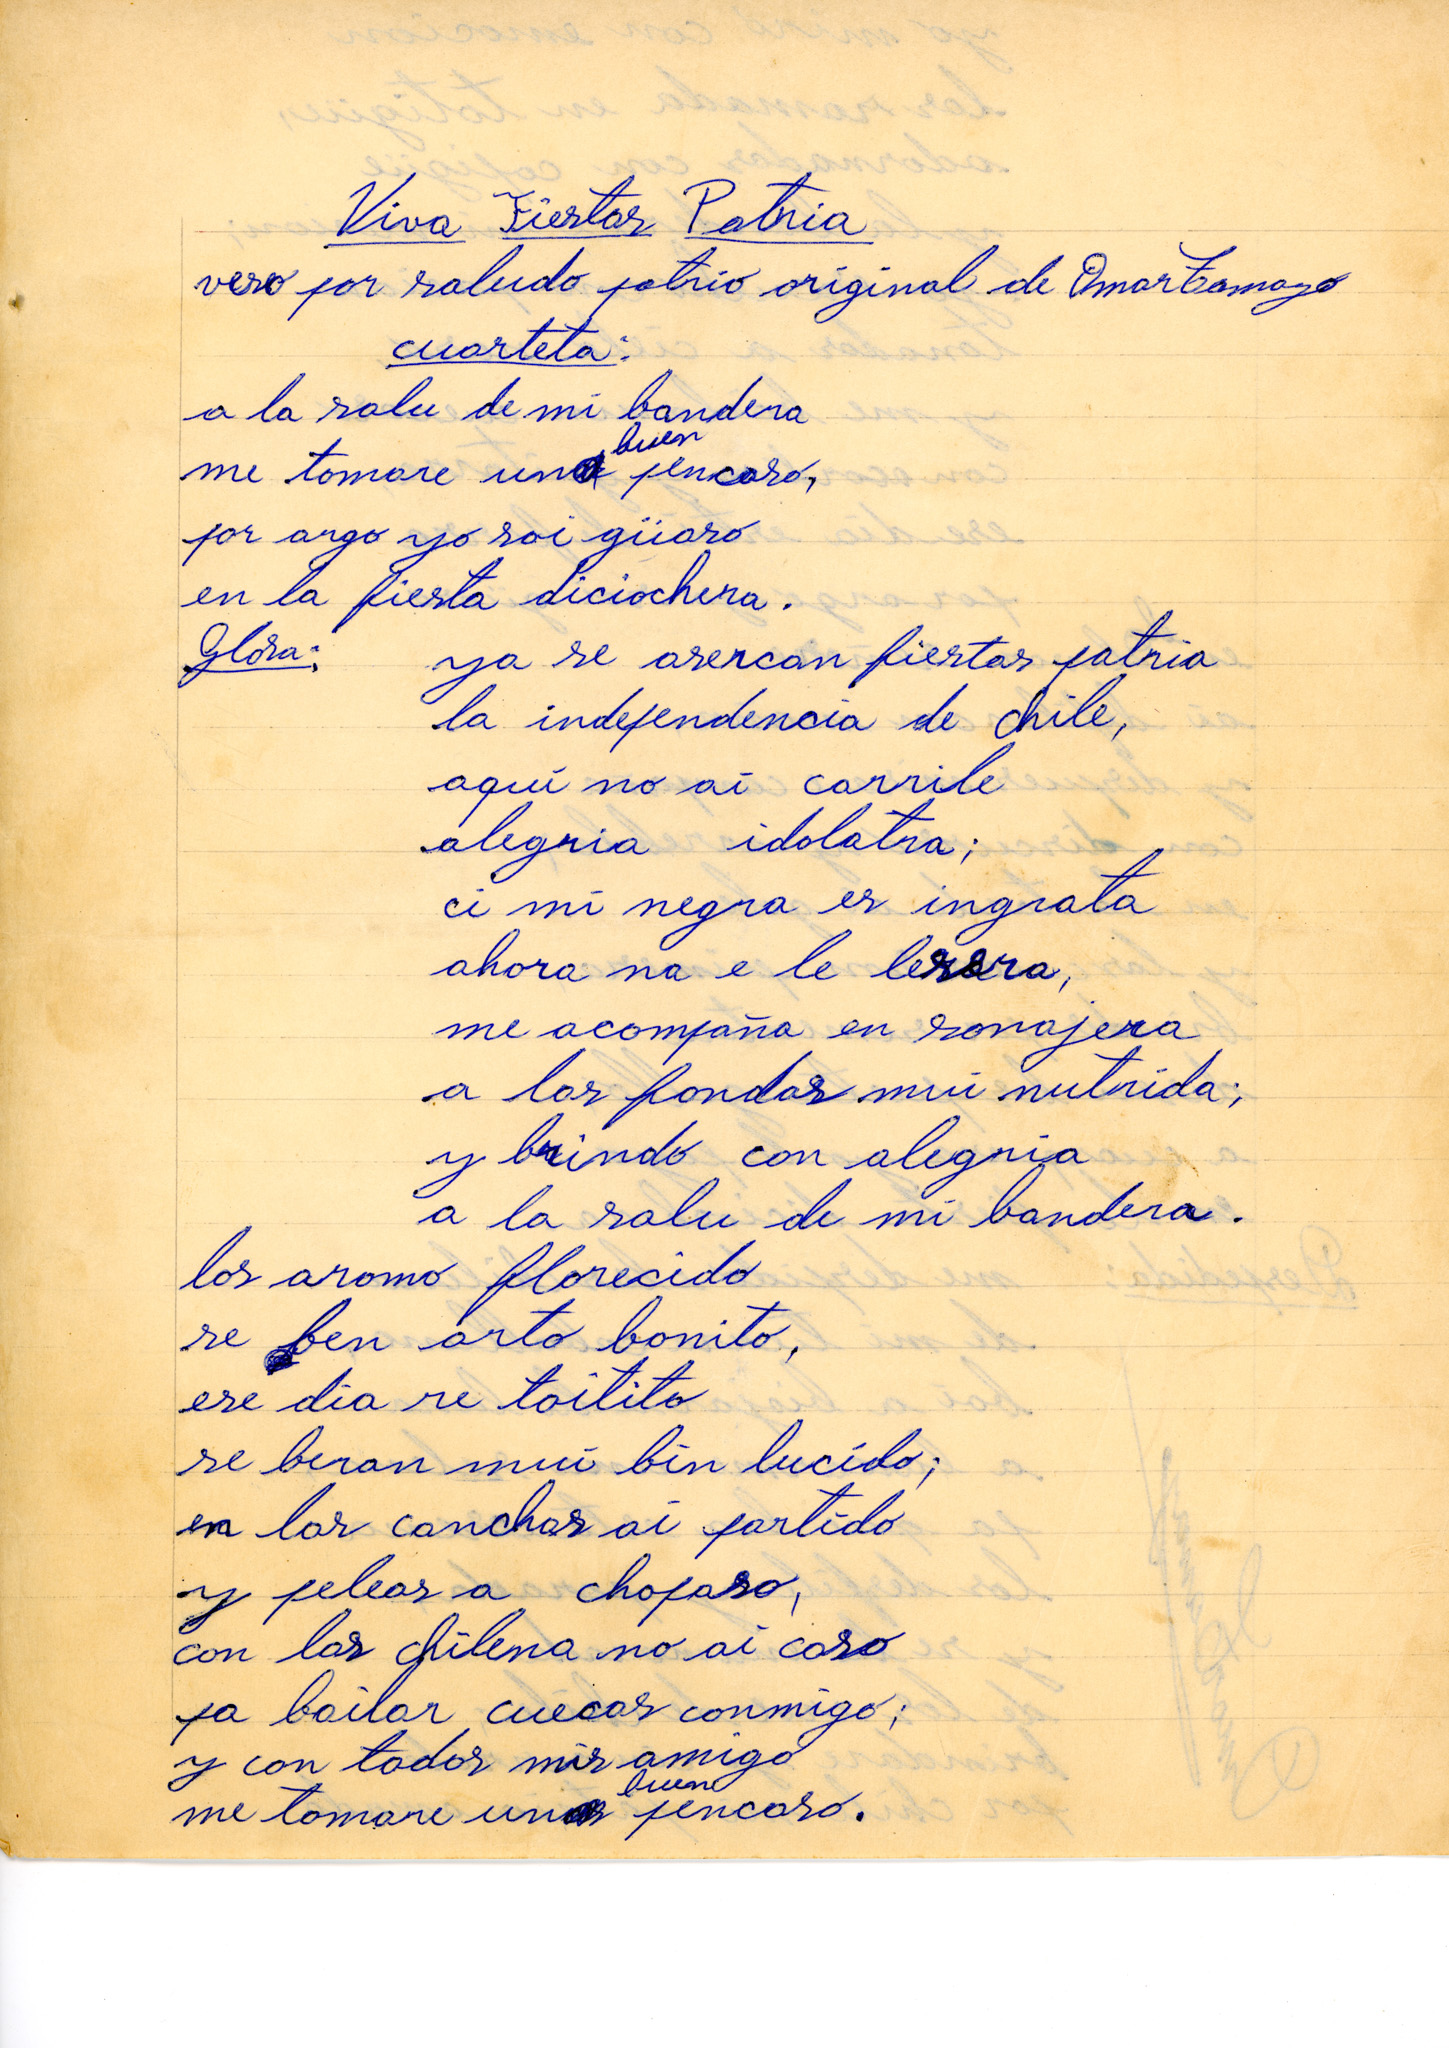 Viva Fiestas Patria
verso por saludo patrio original de Omar Tamayo
cuarteta:
a la salu de mi bandera
me tomare un buen pencaso,
por argo yo soi güaso
en la fiesta diciochera.
Glosa:
ya se asercan fiestas patria
la independencia de chile,
aquí no ai carrile
alegria idolatra;
ci mi negra es ingrata
ahora na e le lesera,
me acompaña en sonajera
a las fondas mui nutrida;
y brindo con alegria
a la salu de mi bandera.
los aromo florecido
se ben arto bonito,
ese dia re toitito
se beran mui bin lucido;
en las canchas ai partido
y peleas a chopaso,
con las chilena no ai caso
pa bailar cuecas conmigo;
y con todos mis amigo
me tomare un buen pencaso.